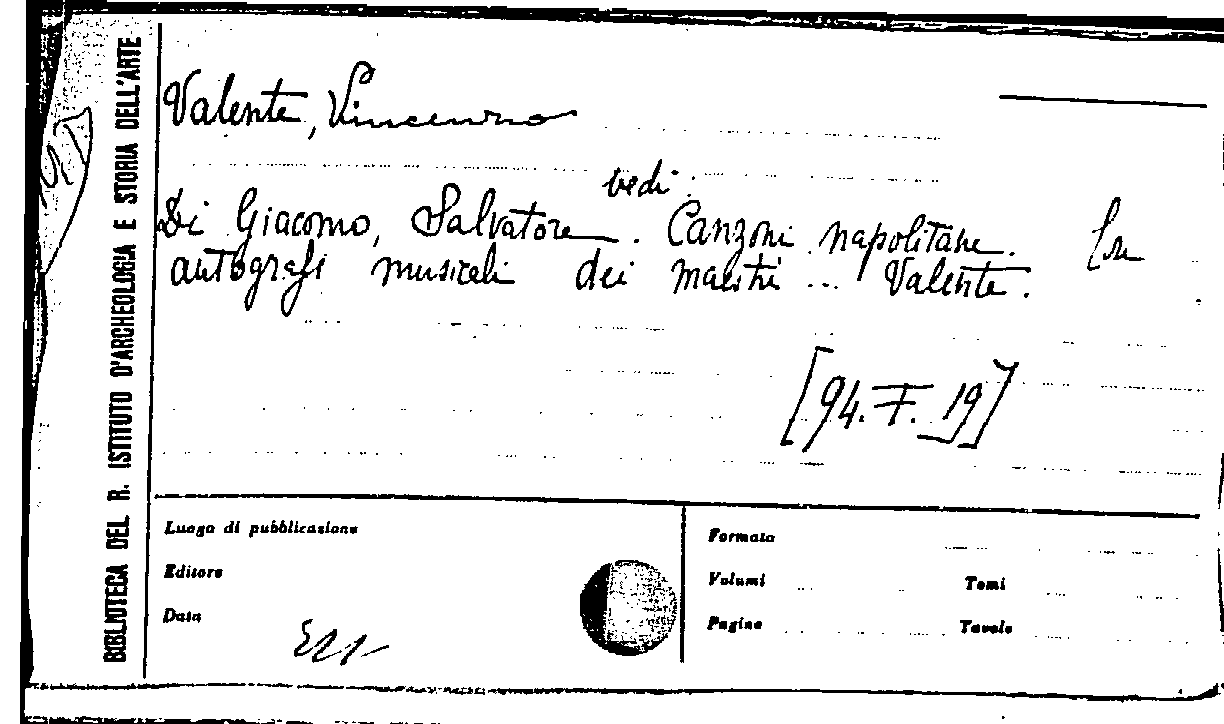 BIBLIOTECA DEL R. ISTITUTO D'ARCHEOLOGIA E STORIA DELL'ARTE
Valente, Vincenzo
vedi:
Di Giacomo, Salvatore. Canzoni napolitane. Con
autografi musicali dei maestri ... Valente.
[94. F. 19]
Luogo di pubblicazione
Editore
Data
Formato
Volumi Tomi
Pagine Tavole